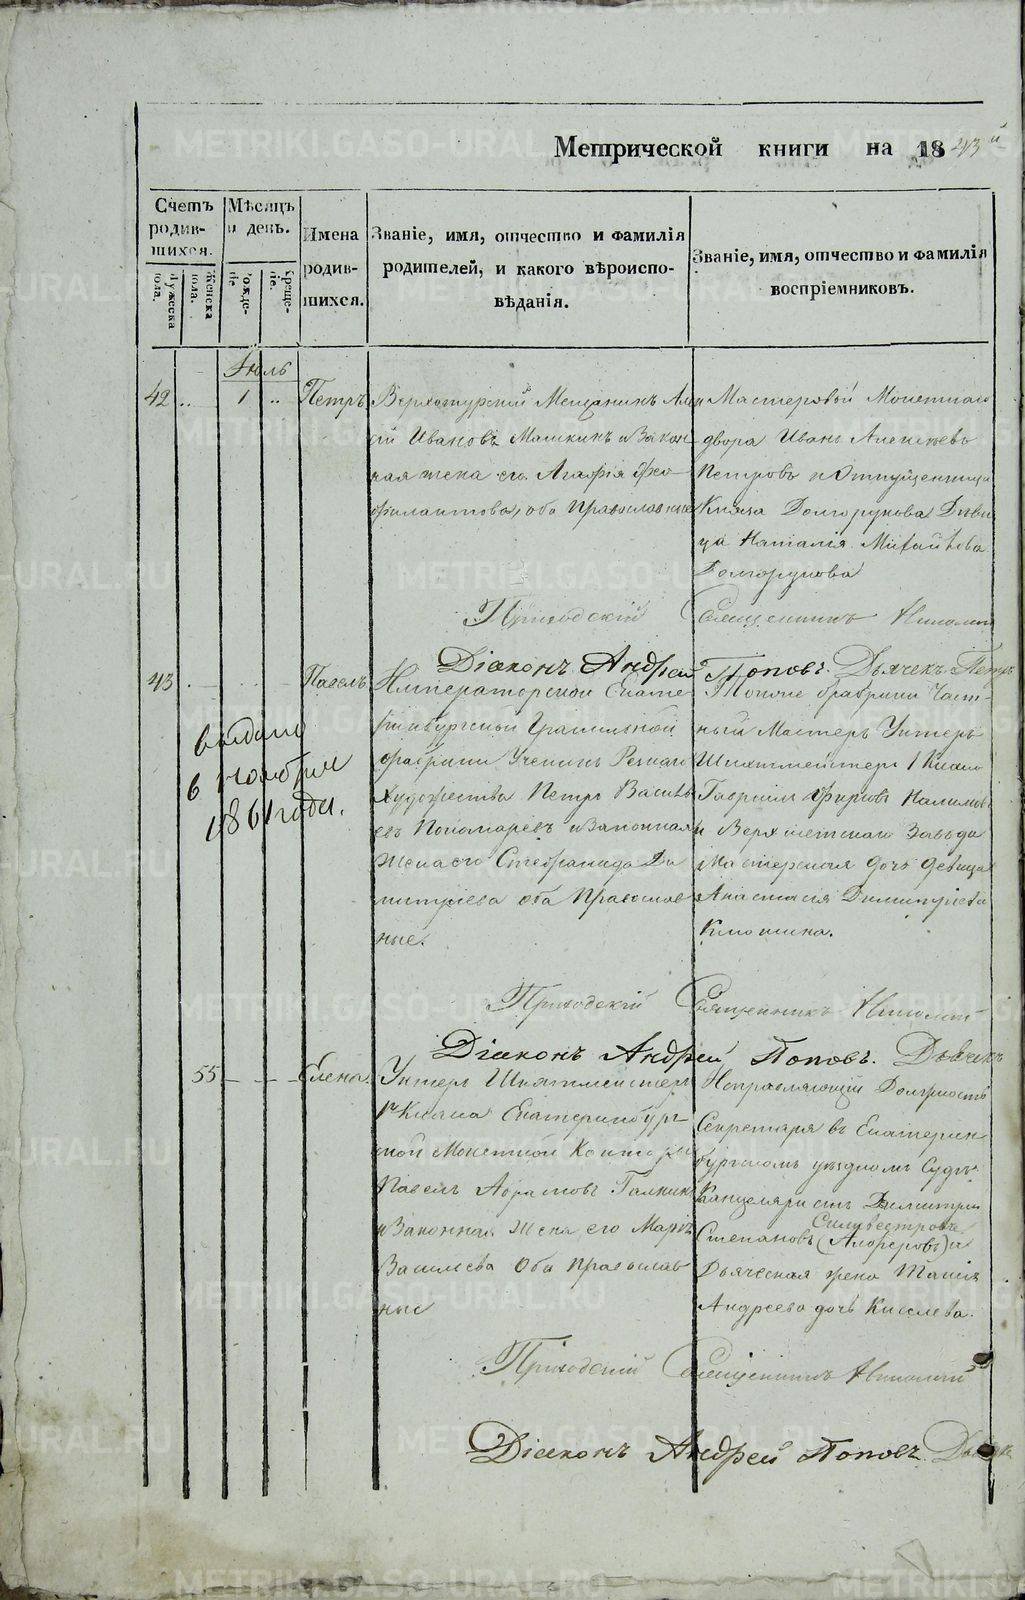 Метрической книги на 1843й
Счетъ родившихся.
Мѣсяцъ и день.
Имена родившихся.
Званіе, имя, отчество и фамилія родителей, и какого вѣроисповѣданія.
Званіе, имя, отчество и фамилія воспріемниковъ.
Мужеска пола.
Женска пола.
рожденіе
крещеніе.
Іюль
42 .. 1 .. Петръ
Верхотурскій Мещанинъ Алек
ѣй Ивановъ Машкинъ и Закон
ная жена его Агафія Фео
филактова, оба Православные
Мастеровой Монетнаго
двора Иванъ Алексѣевъ
Петровъ и Отпущенница
Князя Долгорукова Дѣви
ца Наталія Михайлова
Долгорукова
Приходскій Священникъ Николай
Діаконъ Андрей Поповъ. Дьячекъ Петръ
43 Павелъ
выдано
6 ноября
1861 года.
Императорской Екате
ринбургской Гранильной
фабрики Ученикъ Резнаго
Художества Петръ Василь
евъ Пономаревъ и Законная
Жена его Стефанида Ди
митріева оба Православ
ные.
Тойже фабрики Част-
ный Мастеръ Унтеръ
Шихтмейстеръ 1 Класса
Гавріилъ Фирсовъ Налимовъ
и Верхисетскаго Завода
Мастерская дочь девица
Анастасія Димитріева
Клюшина.
Приходскій Священникъ Николай
Діаконъ Андрей Поповъ. Дьячекъ
55 Елена.
Унтеръ Шихтмейстеръ
1го Класса Екатеринбург
ской Монетной Конторы
Павелъ Абрамовъ Галкинъ
и Законная Жена его Марія
Васильева Оба православ
ные
Исправляющій Должность
Секретаря въ Екатерин
бургскомъ уѣздномъ Судѣ
Канцеляристъ Димитрій
Силивестровъ
Степановъ (Алферовъ) и
Дьяческая жена Таисія
Андреева дочь Киселева.
Приходскій Священникъ Николай
Діаконъ Андрей Поповъ. Дьячекъ
METRIKI.GASO-URAL.RU